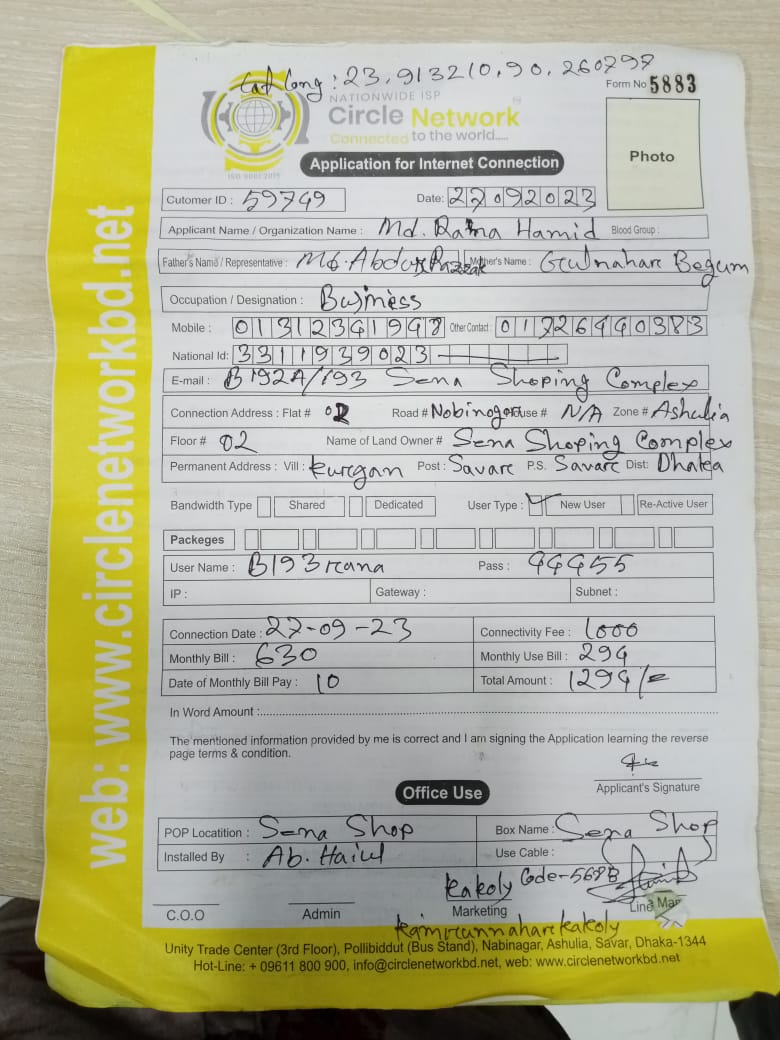 Lat Long : 23.913210, 90.260797
NATIONWIDE ISP
Form No 5883
Circle Network
Connected to the world.....
ISO 9001:2015
Application for Internet Connection
Photo
Cutomer ID : 59749 Date: 27092023
Applicant Name / Organization Name : Md. Rana Hamid Blood Group :
Father's Name / Representative : Md. Abdur Razzak Mother's Name : Gulnahar Begum
Occupation / Designation : Business
Mobile : 01312341947 Other Contact : 01726440383
National Id: 3311939023
E-mail : B192A/193 Sena Shoping Complex
Connection Address : Flat # 02 Road # Nobinogor House # N/A Zone # Ashulia
Floor # 02 Name of Land Owner # Sena Shoping Complex
Permanent Address : Vill : kurgan Post : Savar P.S. Savar Dist: Dhaka
Bandwidth Type Shared Dedicated User Type : New User Re-Active User
Packeges
User Name : B193rana Pass : 44455
IP : Gateway : Subnet :
Connection Date : 27-09-23 Connectivity Fee : 1000
Monthly Bill : 630 Monthly Use Bill : 294
Date of Monthly Bill Pay : 10 Total Amount : 1294/=
In Word Amount :
The mentioned information provided by me is correct and I am signing the Application learning the reverse
page terms & condition.
Applicant's Signature
Office Use
POP Locatition : Sena Shop Box Name : Sena Shop
Installed By : Ab. Use Cable :
kakoly Code-568B
C.O.O Admin Marketing Line Man
kamrunnahar kakoly
Unity Trade Center (3rd Floor), Pollibiddut (Bus Stand), Nabinagar, Ashulia, Savar, Dhaka-1344
Hot-Line: + 09611 800 900, info@circlenetworkbd.net, web: www.circlenetworkbd.net
web: www.circlenetworkbd.net